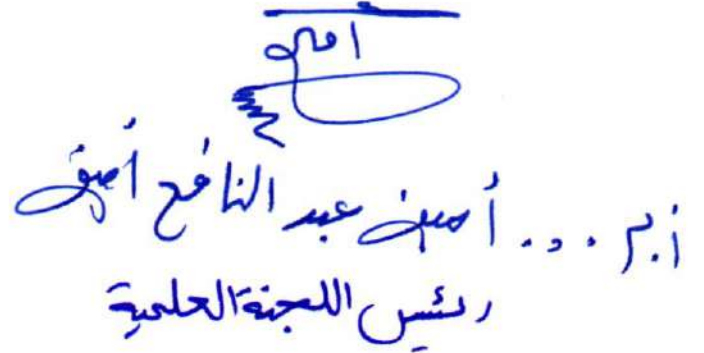 أمين
أ.م. د. أمين عبد النافع أمين
رئيس اللجنة العلمية